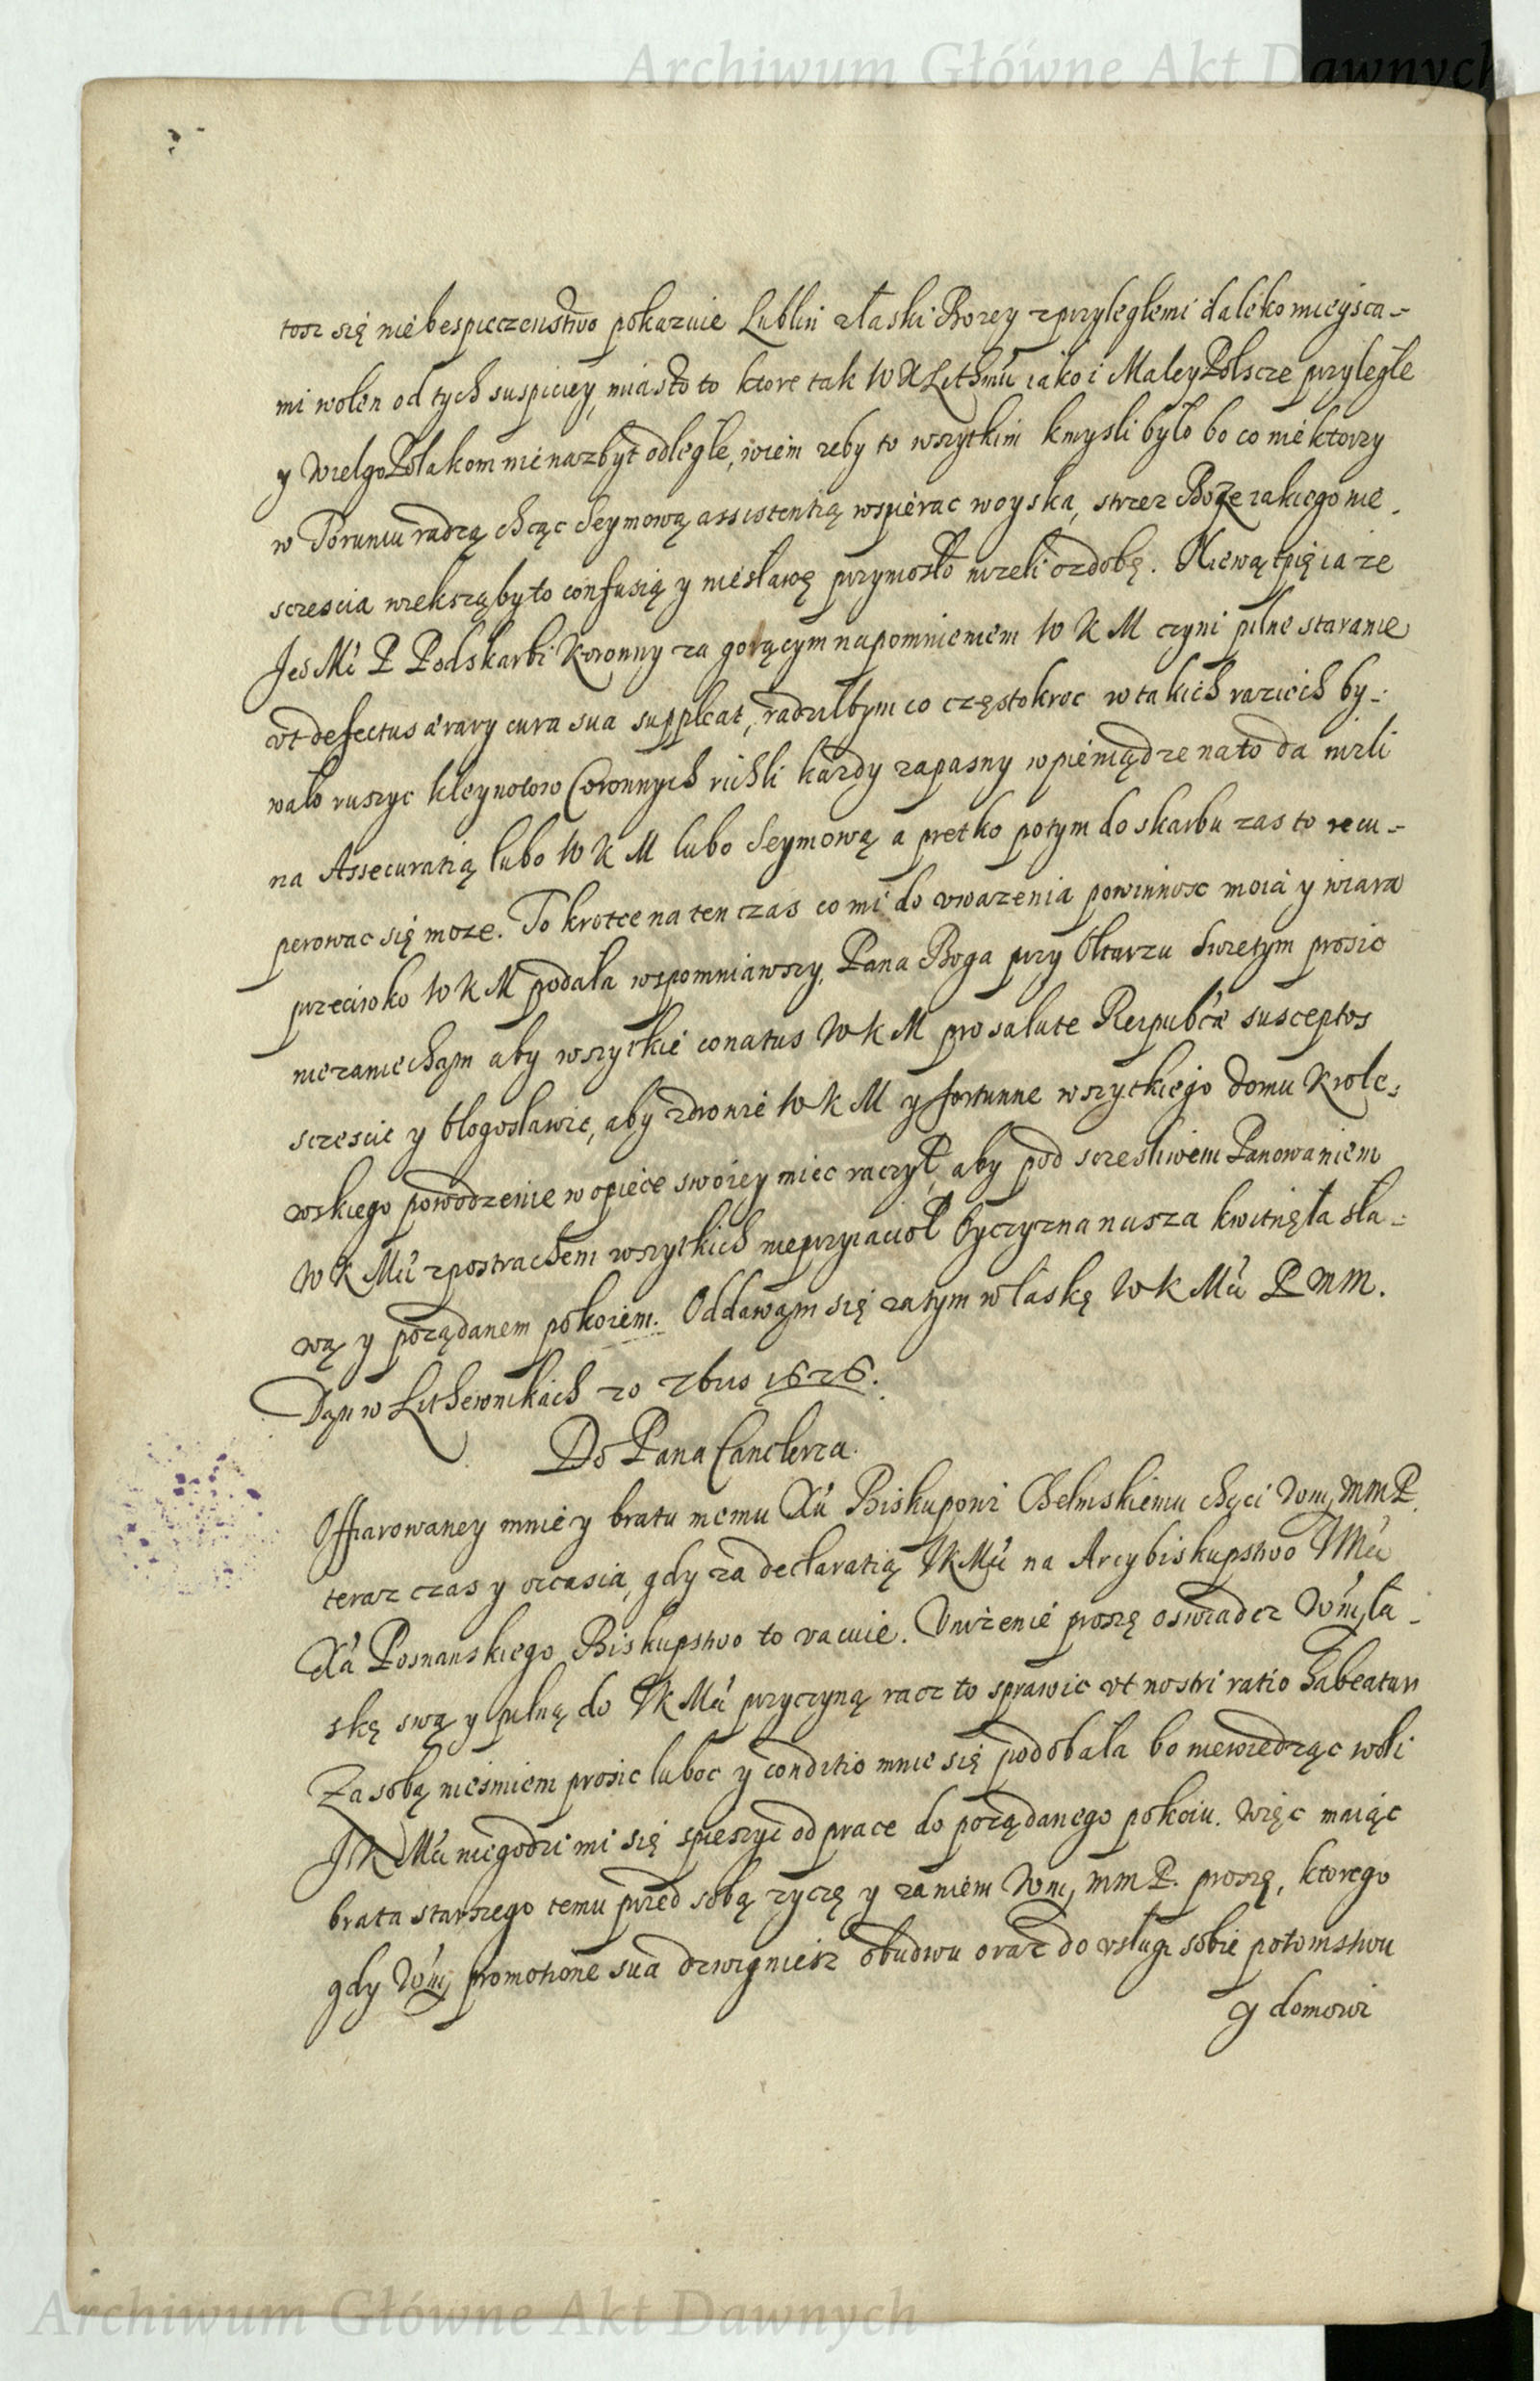 Archiwum Główne Akt Dawnych
tosz się niebespieczenstwo pokazuie Lublin złaski Bozey zprzyległemi daleko mieysca-
mi wolen od tych suspiciey, miasto to ktore tak W X Lithmu iako i Maley Polscze przyległe
y WielgoPolakom nienazbyt odległe, wiem zeby to wszytkim kmysli było bo co niektorzy
w Toruniu radzą chcąc Seymową assistentią wspierac woyska, strzez Boze iakiego nie
sczescia wiekszą by to confusią y niesławę przyniosło nizeli ozdobę. Niewątpię ia ze
Jeo Mć P Podskarbi Koronny za gorącym napomnieniem W K M czyni pilne staranie
vt defectus ærary cura sua suppleat, radziłbym co częstokroc w takich raziech by-
wało ruszyc kleynotow Coronnych richli kazdy zapasny w pieniądze na to da nizli
na Assecuratią lubo W K M lubo Seymową a pretko potym do skarbu zas to recu-
perowac się moze. To krotce na ten czas co mi do vwazenia powinnosc moia y wiara
przeciwko W K M podała wspomniawszy, Pana Boga przy Ołtarzu Swietym prosic
niezaniecham aby wszytkie conatus W K M pro salute Reipubcæ susceptos
sczescic y błogosławic, aby zdrowie W K M y fortunne wszytkiego domu Krole,
wskiego powodzenie w opiece swoiey miec raczył, aby pod sczesliwem Panowaniem
W K Mci zpostrachem wszytkich nieprzyiacioł Oyczyzna nasza kwitnęła sła-
wą y porządanem pokoiem. Oddawam się zatym w łaskę W K Mci P MM.
Dan w Lithewnikach 20 Zbris 1626.
Do Pana Canclerza.
Offiarowaney mnie y bratu memu Xu Biskupowi Chelmskiemu chęci Wm, MMP.
teraz czas y occasia, gdy za declaratią JKMci na Arcybiskupstwo JMci
Xa Posnanskiego Biskupstwo to vacuie. Vnizenie proszę oswiadcz Wm, ła-
skę swą y pilną do JKMci przyczyną racz to sprawic vt nostri ratio habeatur
Za sobą niesmiem prosic luboc y conditio mnie się podobala bo niewiedząc woli
JKMci niegodzi mi się spieszyc od prace do porządanego pokoiu. Więc maiąc
brata starszego temu przed sobą zyczę y zaniem Wm, MMP. proszę, ktorego
gdy Wm, promotione sua dzwigniesz obudwu oraz do vsług sobie potomstwu
y domowi
Archiwum Główne Akt Dawnych